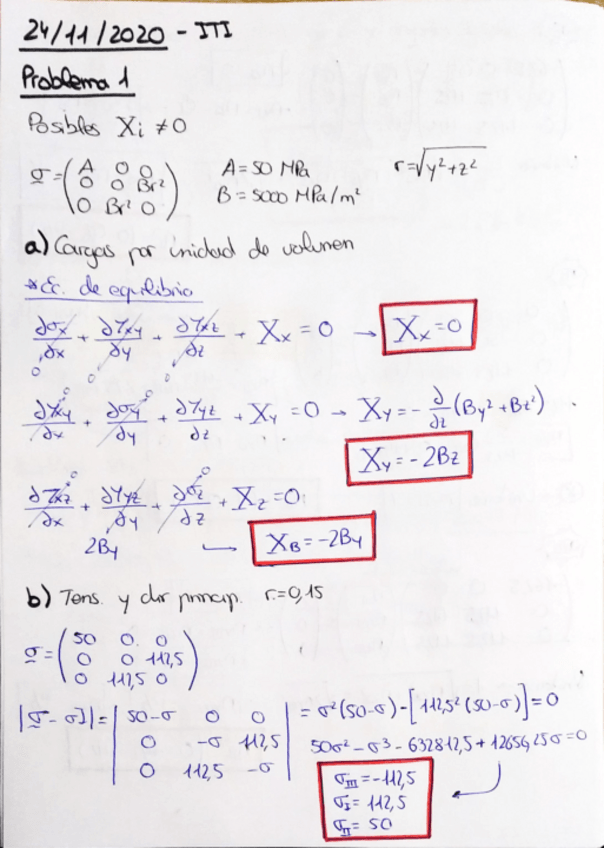 24/11/2020 - ITI
Problema 1
Posibles Xi ≠ 0
σ = (A 0 0   A = 50 MPa   r = √y²+z²
0 0 Br²   B = 5000 MPa/m²
0 Br² 0)
a) Cargas por unidad de volumen
*Ec. de equilibrio
∂σx/∂x + ∂τxy/∂y + ∂τxz/∂z + Xx = 0 → Xx = 0
0 0 0
∂τxy/∂x + ∂σy/∂y + ∂τyz/∂z + Xy = 0 → Xy = - ∂/∂z (By² + Bz²)
Xy = -2Bz
0 0
∂τxz/∂x + ∂τyz/∂y + ∂σz/∂z + Xz = 0
2By → XB = -2By
b) Tens. y dir princip. r=0,15
σ = (50 0 0
0 0 112,5
0 112,5 0)
|σ - σI| = | 50-σ 0 0 | = σ²(50-σ) - [112,5² (50-σ)] = 0
| 0 -σ 112,5 | 50σ² - σ³ - 632812,5 + 12656,25σ = 0
| 0 112,5 -σ |
σIII = -112,5
σI = 112,5
σII = 50